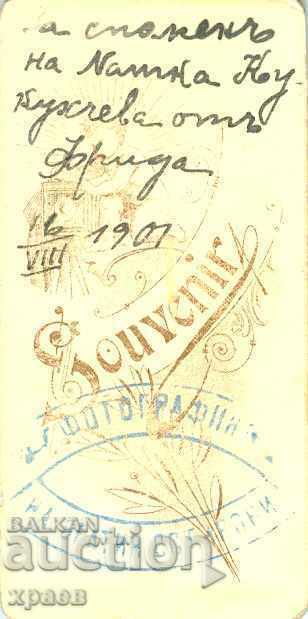 за споменъ
на Натка Ку-
кухчева отъ
Фрида
16/VIII 1901
Souvenir
ФОТОГРАФИЯ
НА
BALKAN
auction
храев